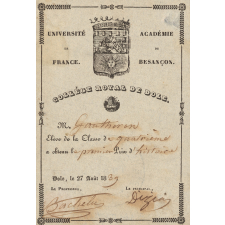 UNIVERSITÉ
DE
FRANCE.
ACADÉMIE
DE
BESANÇON.
COLLÉGE ROYAL DE DOLE.
M.
Elève de la Classe de quatrième
a obtenu le premier Prix d'histoire
Dole, le 27 Août 1839
LE PROFESSEUR,